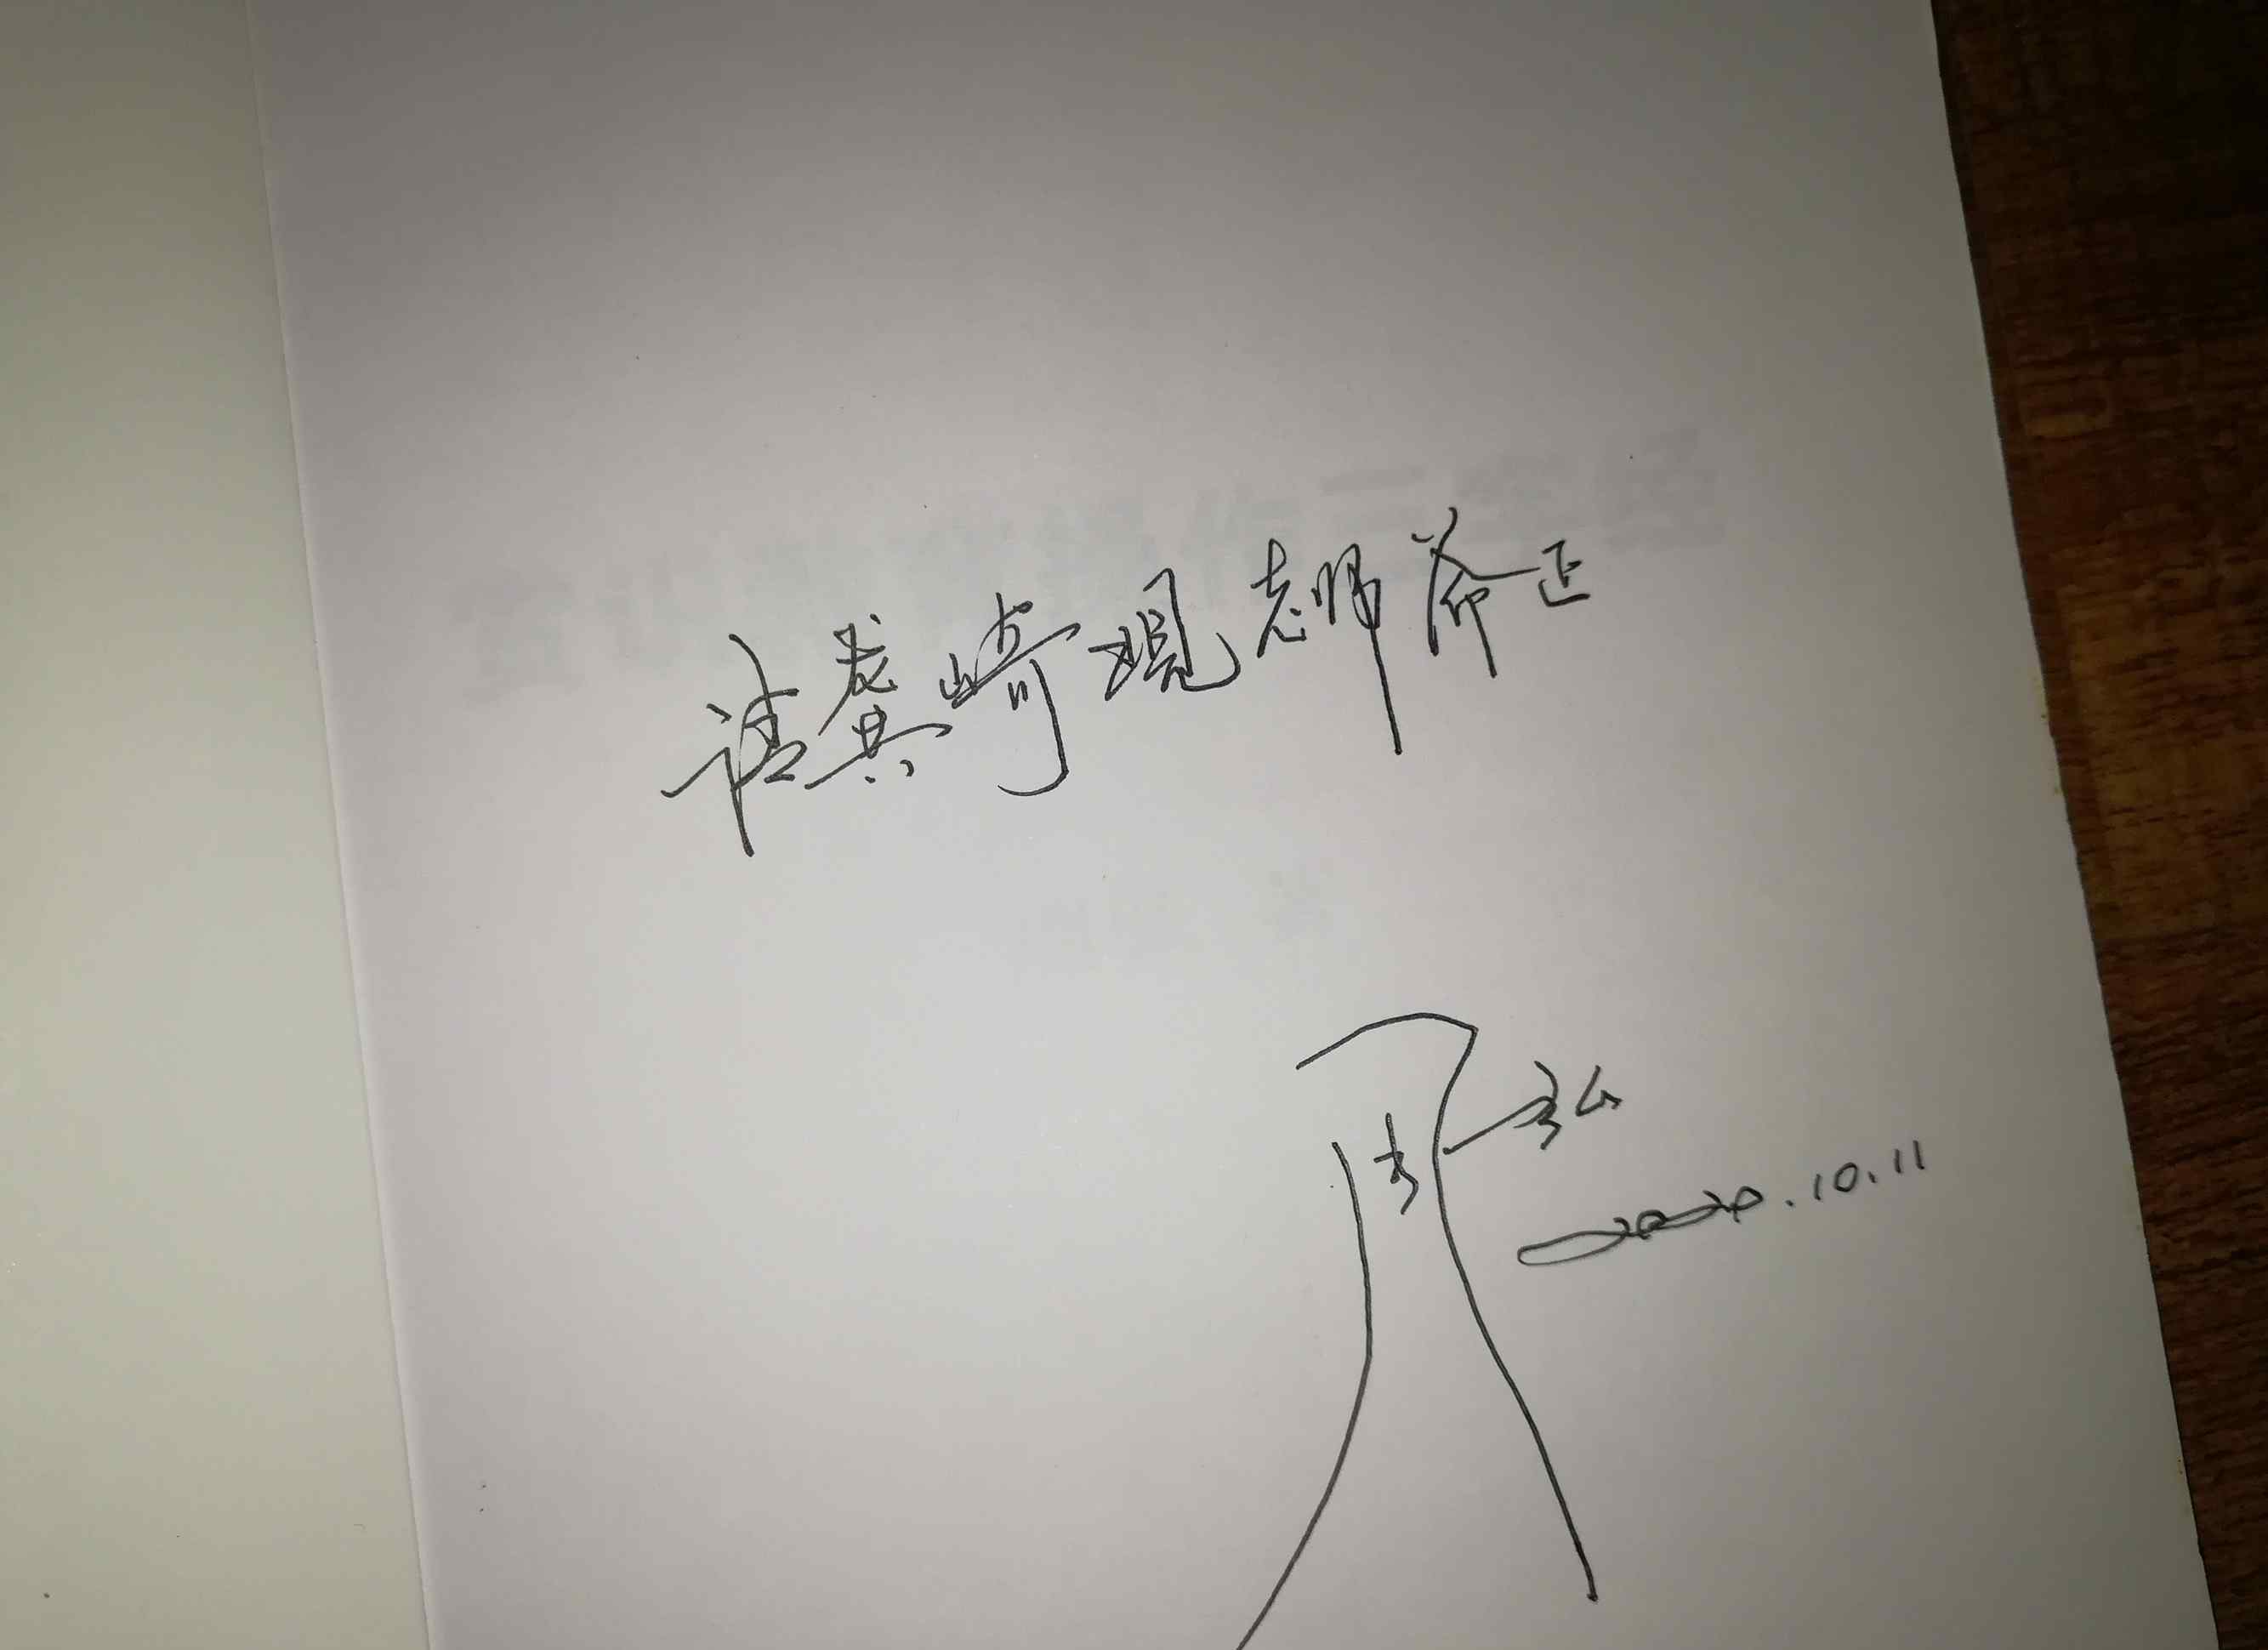 请龚崎现老师斧正
弘
2020.10.11